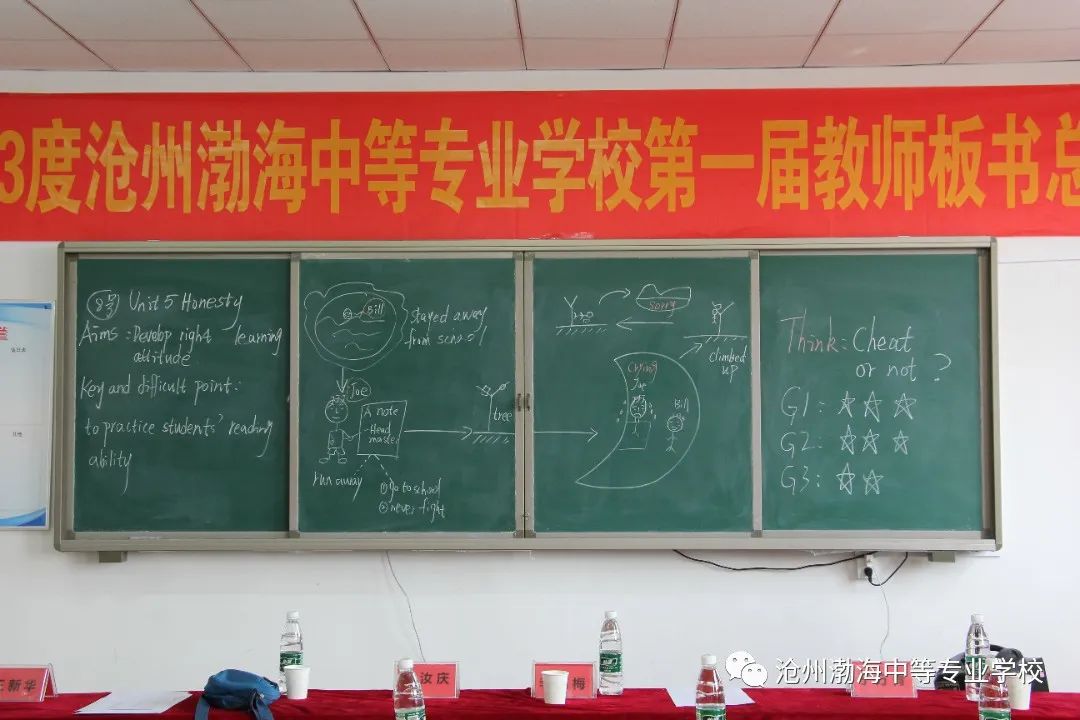 3度沧州渤海中等专业学校第一届教师板书总
8号 Unit 5 Honesty
Aims: Develop right learning
attitude
Key and difficult point:
to practice students' reading
ability
Bill
stayed away
from school
Joe
A note
-Head
master
run away
① go to school
② never fight
tree
Sorry
climbed
up
Crying
Joe
Bill
Think: Cheat
or not ?
G1: ☆ ☆ ☆
G2: ☆ ☆ ☆
G3: ☆ ☆
王新华
汝庆
梅
沧州渤海中等专业学校